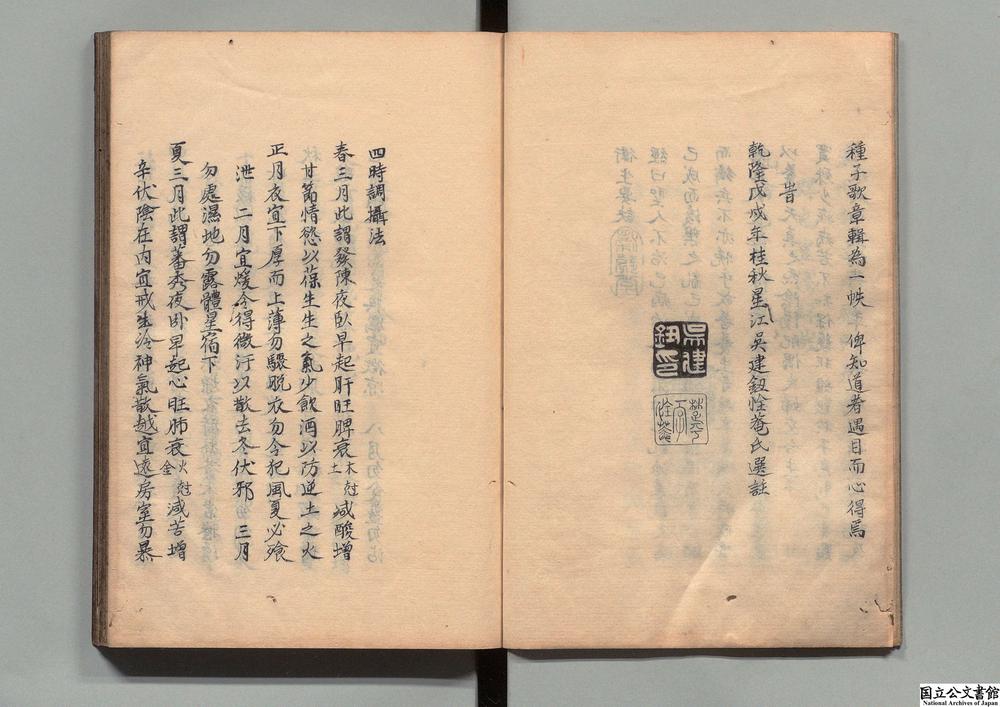 種子歌章輯為二帙 俾知道者遇目而心得焉
旹
乾隆戊戌年桂秋星江吳建鈕恮菴氏選註
四時調攝法
春三月此謂發陳夜臥早起肝旺脾衰木尅土減酸增
甘節情慾以葆生生之氣少飲酒以防逆土之火
正月衣宜下厚而上薄勿驟脫衣勿令犯風夏必飧
泄 二月宜煖令得微汗以散去冬伏邪 三月
勿處濕地勿露體星宿下
夏三月此謂蕃秀夜臥早起心旺肺衰火尅金減苦增
辛伏陰在內宜戒生冷神氣散越宜遠房室勿暴
国立公文書館
National Archives of Japan